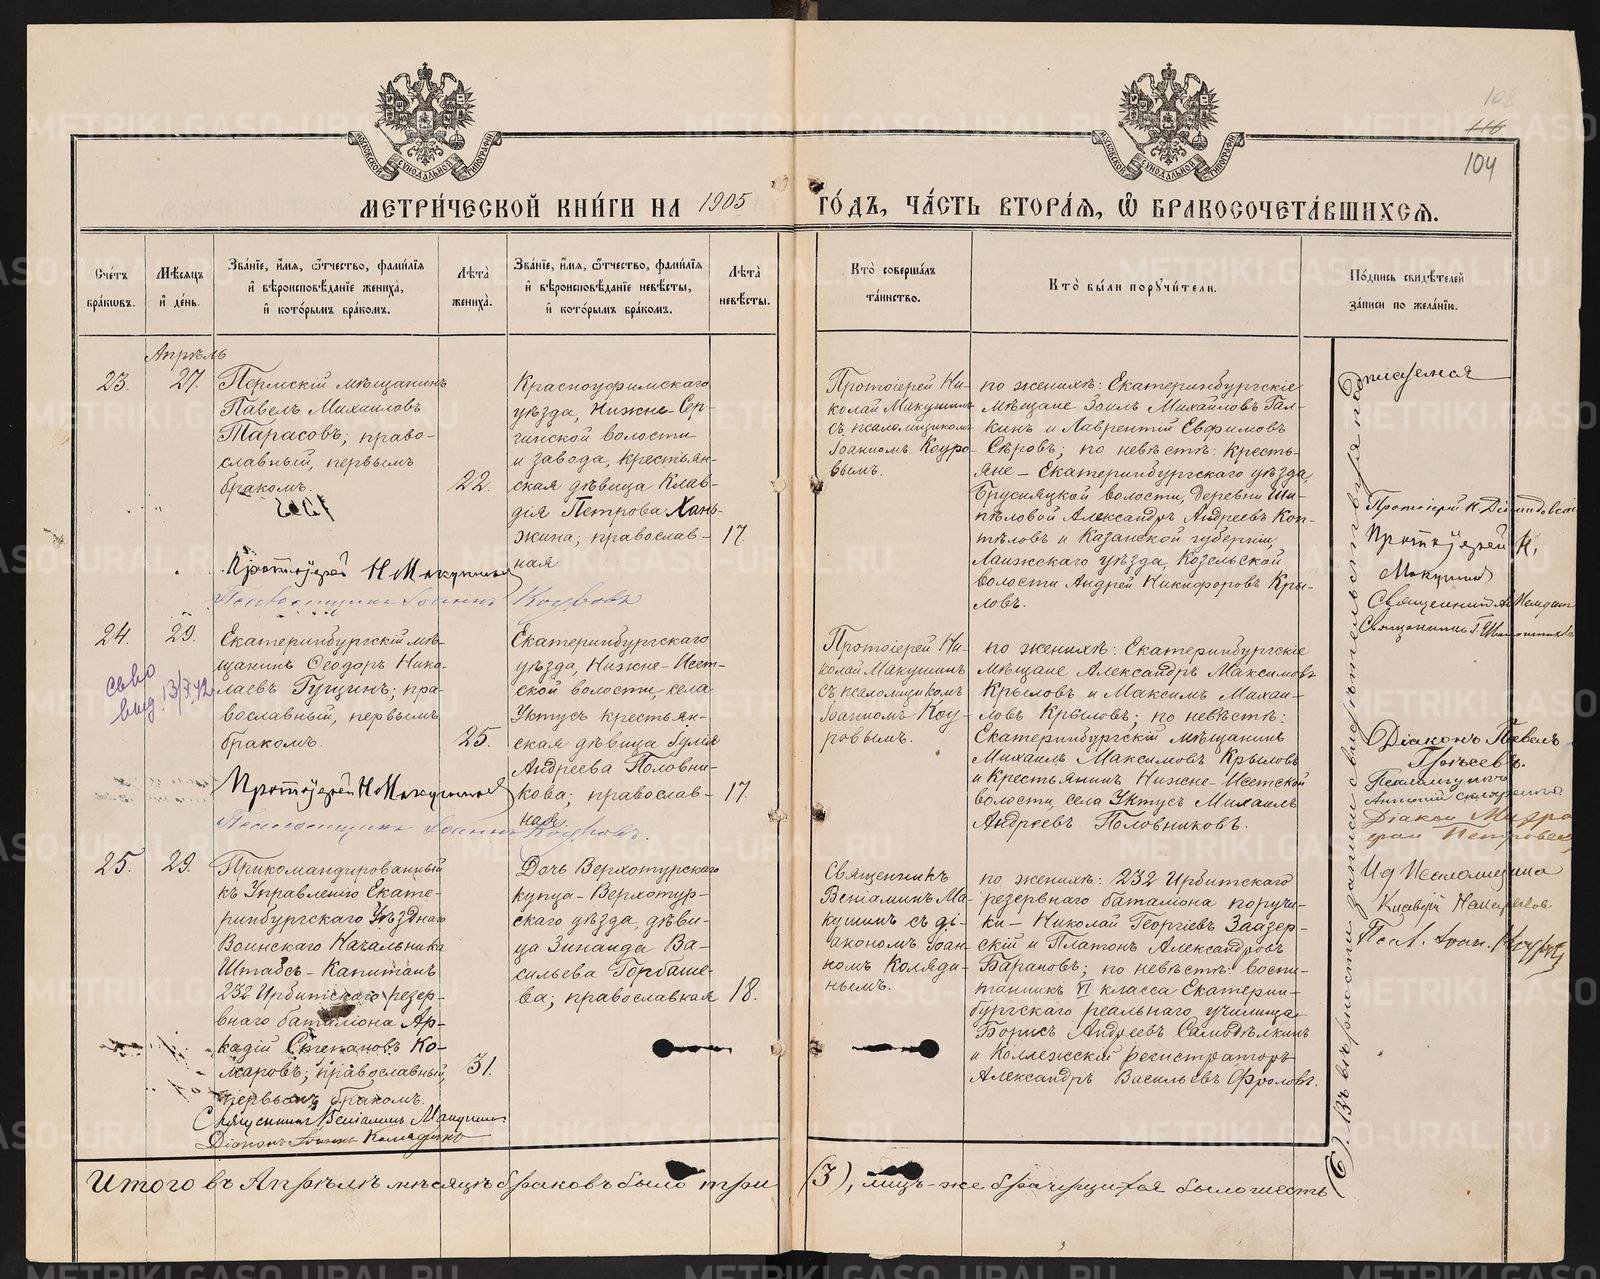 108
116
104
МЕТРИ́ЧЕСКОЙ КНИ́ГИ НА 1905 ГО́ДЪ, ЧА́СТЬ ВТОРА́Я, Ѽ БРАКОСОЧЕТА́ВШИХСЯ.
Сче́тъ бра́кѡвъ.
Мѣ́сяцъ и҆ де́нь.
Зва́нїе, и҆́мя, ѻ҆́тчество, фами́лїя и҆ вѣроисповѣ́данїе жениха̀, и҆ кото́рымъ бра́комъ.
Лѣта̀ жениха̀.
Зва́нїе, и҆́мя, ѻ҆́тчество, фами́лїя и҆ вѣроисповѣ́данїе невѣ́сты, и҆ кото́рымъ бра́комъ.
Лѣта̀ невѣ́сты.
Кто̀ соверша́лъ та́инство.
Кто̀ бы́ли порꙋчи́тели.
По́дпись свидѣ́телей за́писи по жела́нїю.
Апрѣль
23.
27.
Пермскій мѣщанинъ
Павелъ Михаиловъ
Тарасовъ; право-
славный, первымъ
бракомъ.
22.
Красноуфимскаго
уѣзда, Нижне-Сер-
гинской волости
и завода, крестьян-
ская дѣвица Клав-
дія Петрова Хань-
жина; православ-
ная
17.
Протоіерей Ни-
колай Макушинъ
съ псаломщикомъ
Іоанномъ Коуро-
вымъ.
по женихѣ: Екатеринбургскіе
мѣщане Зоилъ Михайловъ Гал-
кинъ и Лаврентій Евфимовъ
Сѣровъ; по невѣстѣ: кресть-
яне - Екатеринбургскаго уѣзда,
Брусяцкой волости, деревни Ши-
пѣловой Александръ Андреевъ Коп-
тѣловъ и Казанской губерніи,
Лаишскаго уѣзда, Козельской
волости Андрей Никифоровъ Кры-
ловъ.
Протоіерей Н Макушинъ
Псаломщикъ Іоаннъ Коуровъ
24.
29.
Екатеринбургскій мѣ-
щанинъ Ѳеодоръ Нико-
лаевъ Гущинъ; пра-
вославный, первымъ
бракомъ.
25.
св-во
выд. 13/X 42
Екатеринбургскаго
уѣзда, Нижне-Исет-
ской волости, села
Уктусъ крестьян-
ская дѣвица Юлія
Андреева Половни-
кова; православ-
ная.
17.
Протоіерей Ни-
колай Макушинъ
съ псаломщикомъ
Іоанномъ Коу-
ровымъ.
по женихѣ: Екатеринбургскіе
мѣщане Александръ Максимовъ
Крыловъ и Максимъ Михаи-
ловъ Крыловъ; по невѣстѣ:
Екатеринбургскій мѣщанинъ
Михаилъ Максимовъ Крыловъ
и крестьянинъ Нижне-Исетской
волости, села Уктусъ Михаилъ
Андреевъ Половниковъ.
Протоіерей Н Макушинъ
Псаломщикъ Іоаннъ Коуровъ.
25.
29.
Прикомандированный
къ Управленію Екате-
ринбургскаго Уѣзднаго
Воинскаго Начальника
Штабсъ-Капитанъ
232 Ирбитскаго резер-
внаго баталіона Ар-
кадій Степановъ Ко-
маровъ; православный,
первымъ бракомъ.
31.
Дочь Верхотурскаго
купца - Верхотур-
скаго уѣзда, дѣви-
ца Зинаида Ва-
сильева Горбаше-
ва; православная
18.
Священникъ
Веніаминъ Ма-
кушинъ съ ді-
акономъ Іоан-
номъ Коляди-
нымъ.
по женихѣ: 232 Ирбитскаго
резервнаго баталіона поручи-
ки - Николай Георгіевъ Заазер-
скій и Платонъ Александровъ
Барановъ; по невѣстѣ: воспи-
танникъ VI класса Екатерин-
бургскаго реальнаго училища
Борисъ Андреевъ Самодѣлкинъ
и Коллежскій регистраторъ
Александръ Васильевъ Фроловъ.
Священникъ Веніаминъ Макушинъ
Діаконъ Іоаннъ Колядинъ
Итого въ Апрѣлѣ мѣсяцѣ браковъ было три (3), лицъ-же брачущихся было шесть (6). Въ вѣрности записи свидѣтельствуя подписуемся
Протоіерей Н.
Макушинъ
Діаконъ Павелъ
Псаломщикъ
И д Псаломщика
Псал. Іоан. Коуровъ
METRIKI.GASO-URAL.RU